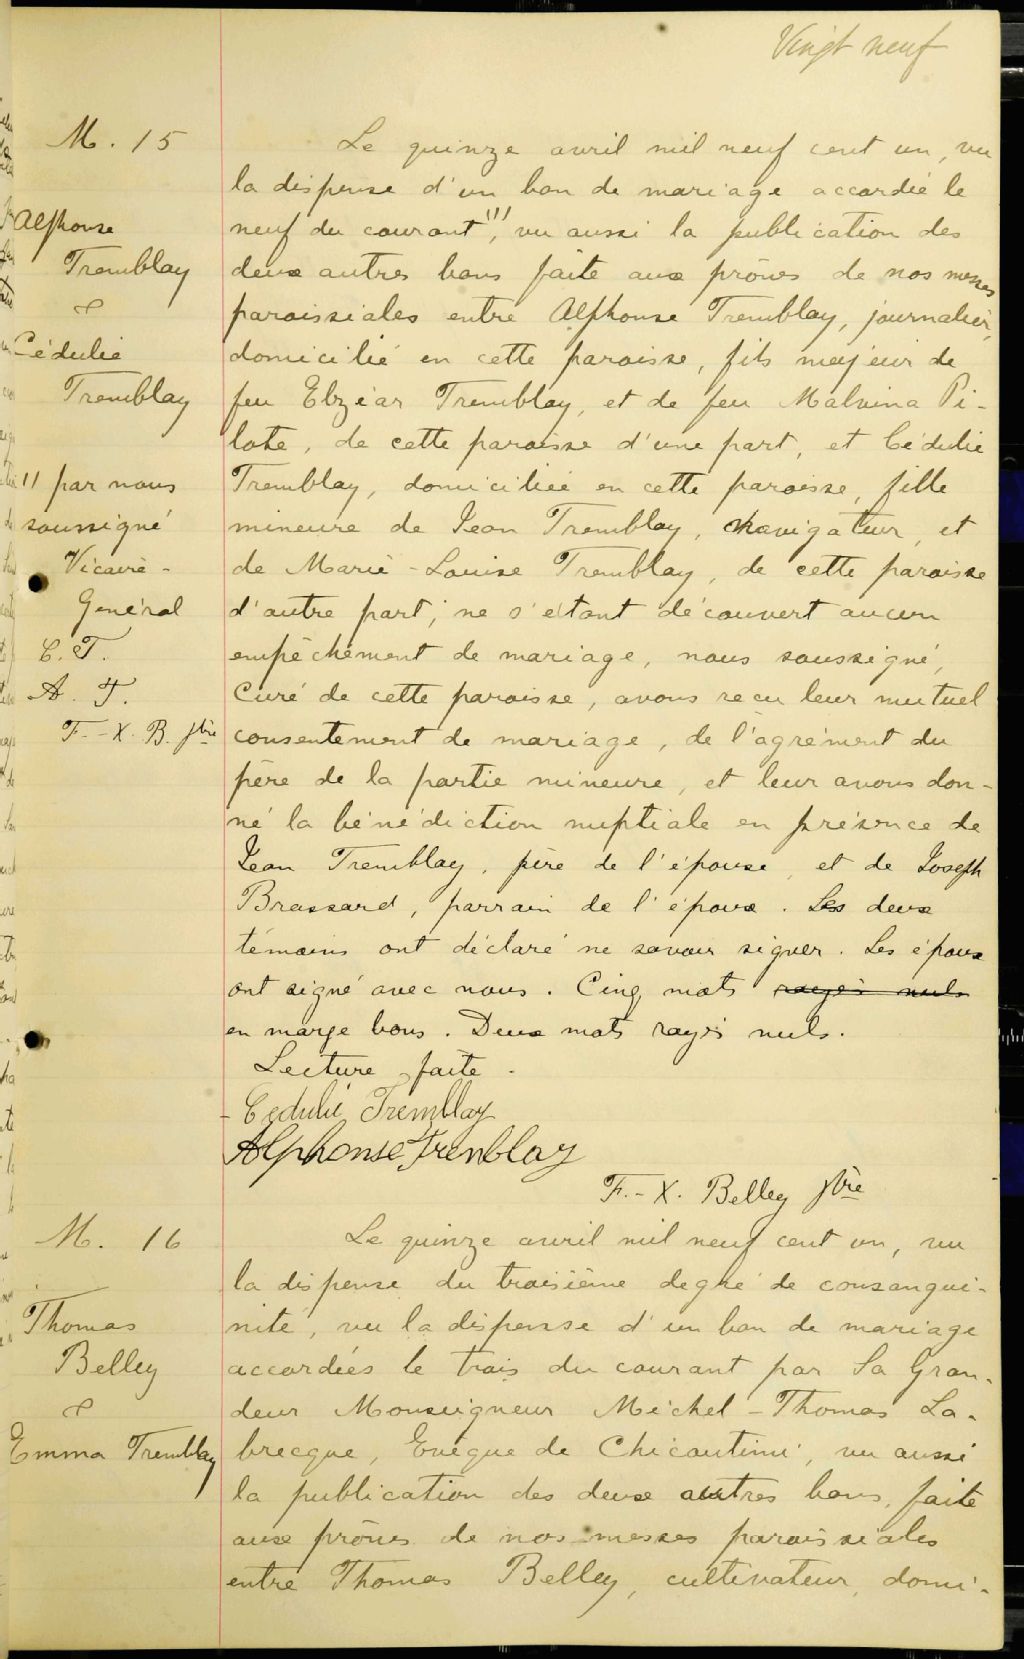 Vingt neuf
M. 15
Alphonse
Tremblay
&
Cédulie
Tremblay
11 par nous
soussigné
Vicaire-
Général
C. T.
A. T.
F.-X. B. ptre
Le quinze avril mil neuf cent un, vu
la dispense d'un ban de mariage accordée le
neuf du courant 11, vu aussi la publication des
deux autres bans faite aux prônes de nos messes
paroissiales entre Alphonse Tremblay, journalier,
domicilié en cette paroisse, fils majeur de
feu Elzéar Tremblay, et de feu Malvina Pi-
lote, de cette paroisse d'une part, et Cédulie
Tremblay, domiciliée en cette paroisse, fille
mineure de Jean Tremblay, navigateur, et
de Marie-Louise Tremblay, de cette paroisse
d'autre part; ne s'étant découvert aucun
empêchement de mariage, nous soussigné,
Curé de cette paroisse, avons reçu leur mutuel
consentement de mariage, de l'agrément du
père de la partie mineure, et leur avons don-
né la bénédiction nuptiale en présence de
Jean Tremblay, père de l'épouse, et de Joseph
Brassard, parrain de l'époux. Les deux
témoins ont déclaré ne savoir signer. Les époux
ont signé avec nous. Cinq mots rayés nuls
en marge bons. Deux mots rayés nuls.
Lecture faite.
Cédulie Tremblay
Alphonse Tremblay
F.-X. Belley ptre
M. 16
Thomas
Belley
&
Emma Tremblay
Le quinze avril mil neuf cent un, vu
la dispense du troisième degré de consangui-
nité, vu la dispense d'un ban de mariage
accordées le trois du courant par Sa Gran-
deur Monseigneur Michel-Thomas La-
brecque, Evêque de Chicoutimi, vu aussi
la publication des deux autres bans, faite
aux prônes de nos messes paroissiales
entre Thomas Belley, cultivateur, domi-